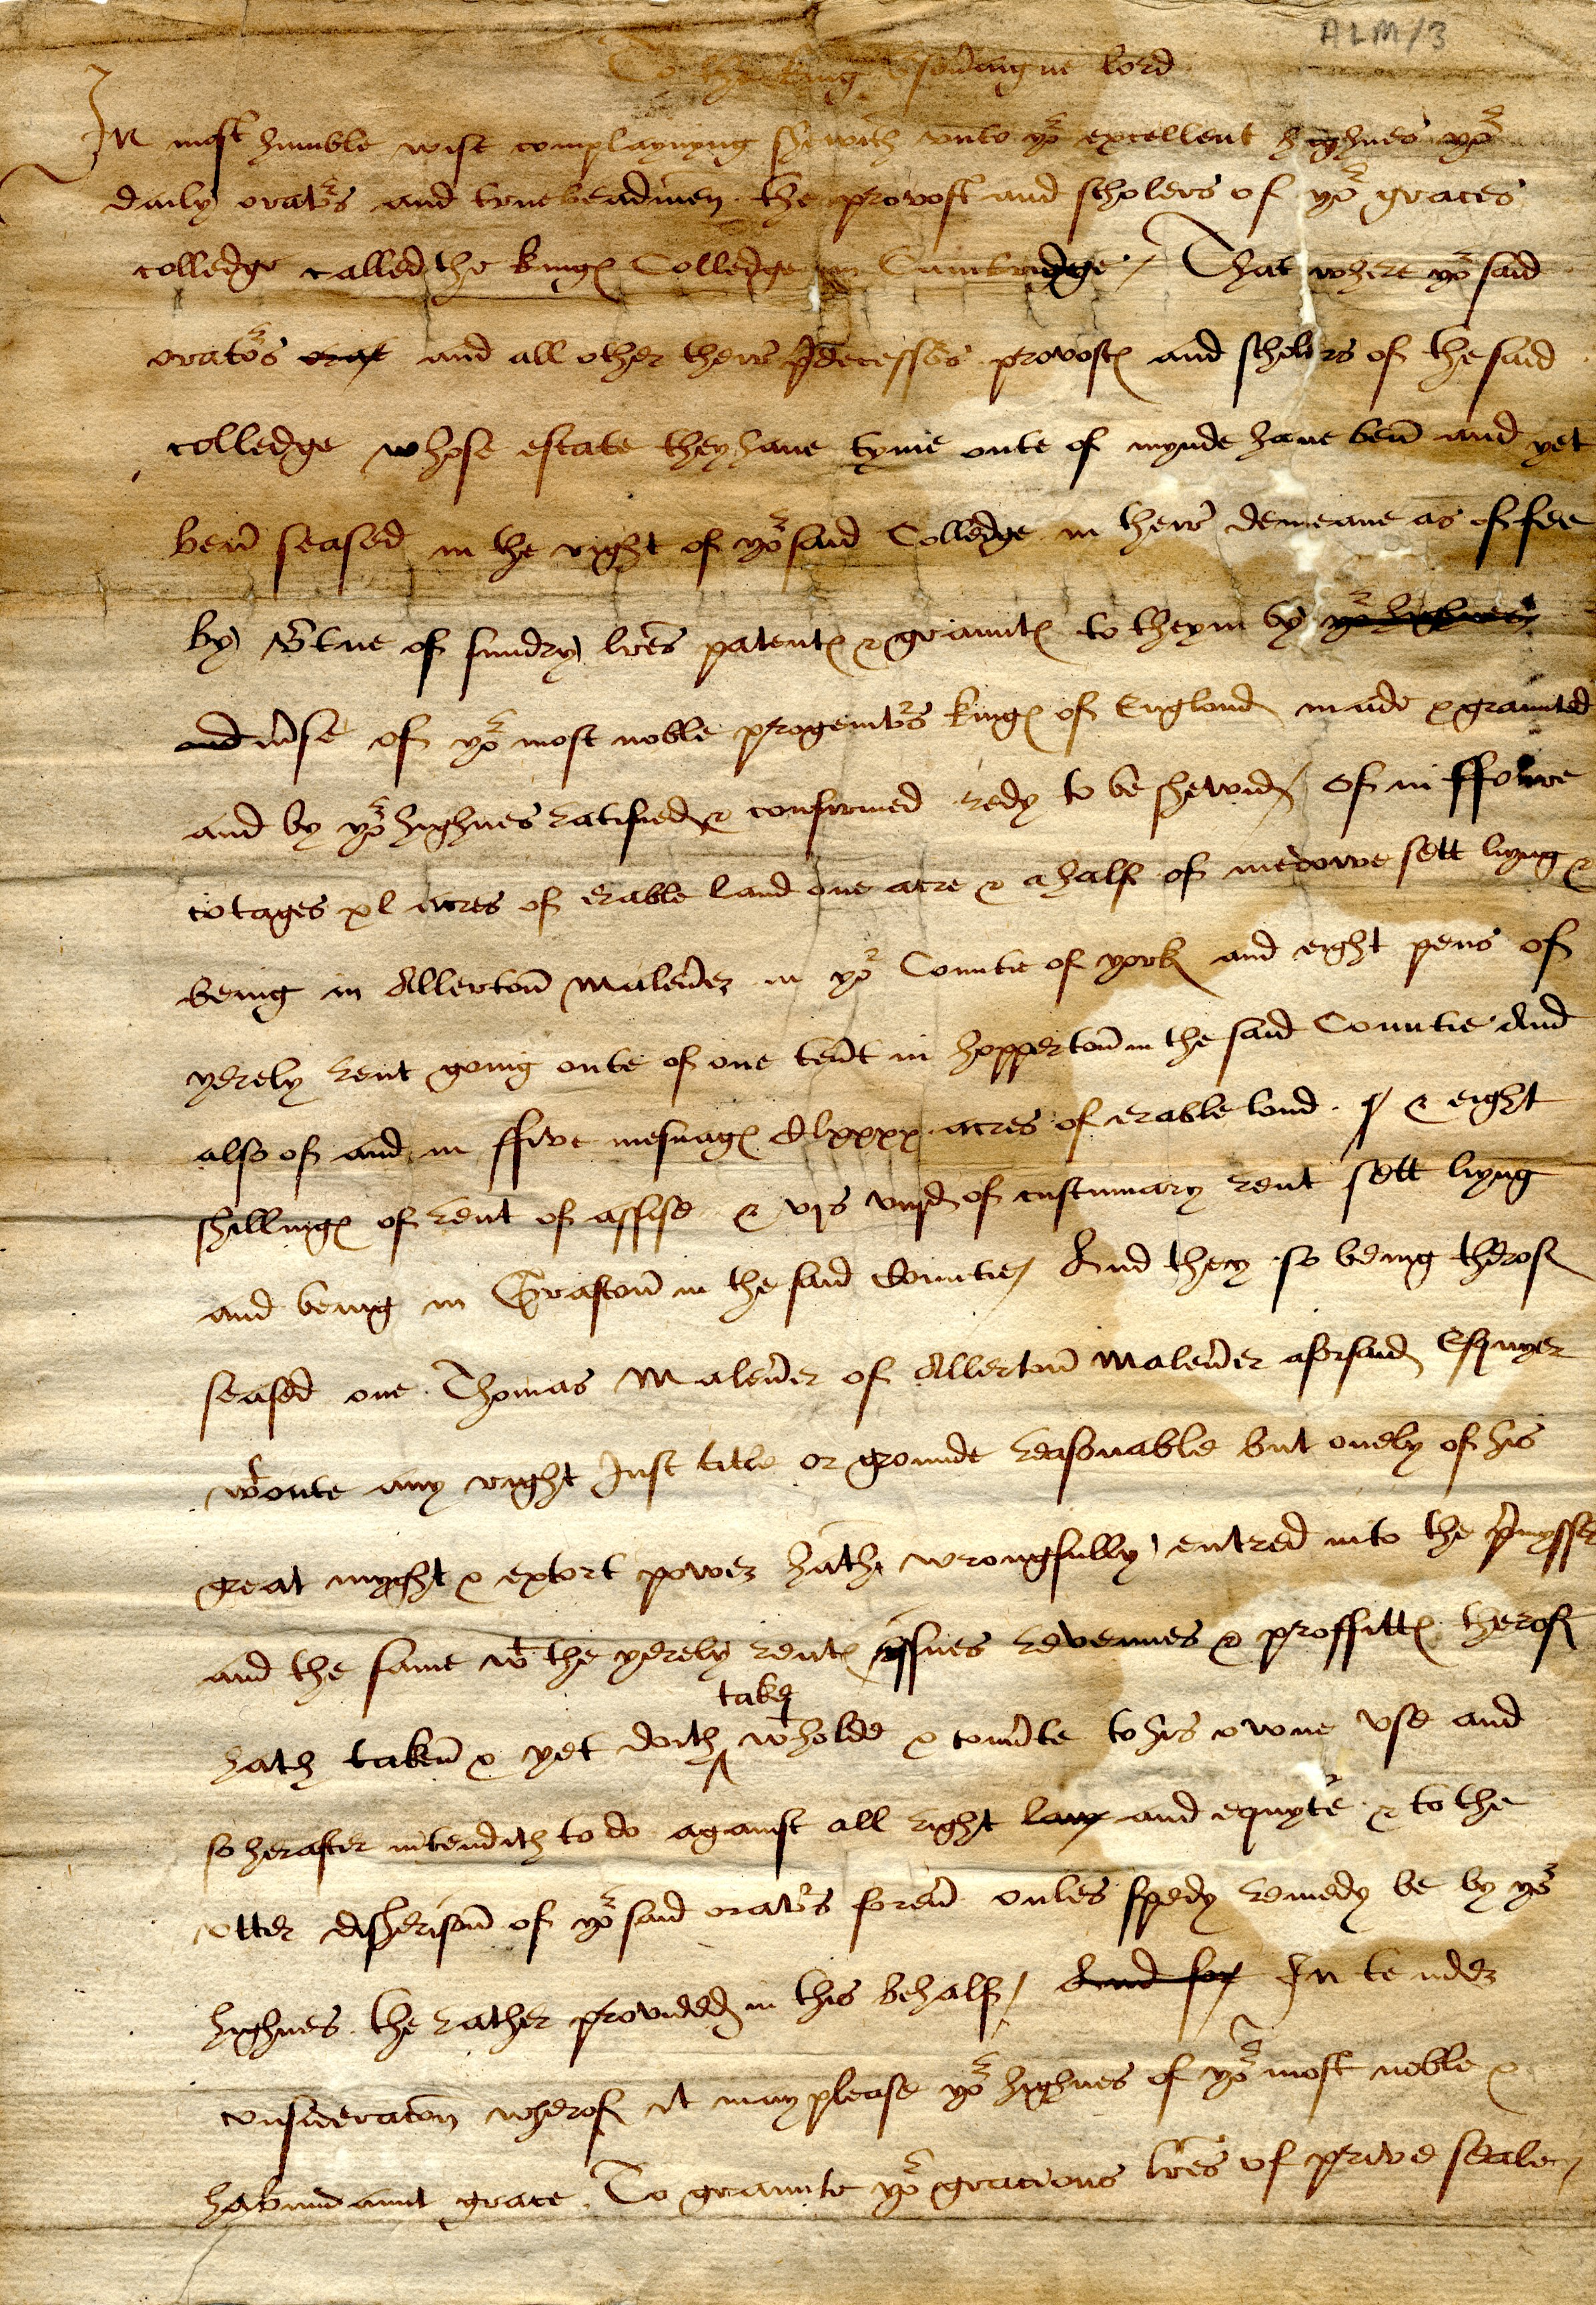 ALM/3
To the king o<sup>r</sup> sov'aigne lord
In most humble wise complaynyng shewith unto yo<sup>r</sup> excellent highnes yo<sup>r</sup>
daily orato<sup>r</sup>s and true beadmen the provost and scholers of yo<sup>r</sup> graces
colledge called the kings Colledge in Cambridge / That where yo<sup>r</sup> said
orato<sup>r</sup>s orat and all other theire p'decesso<sup>r</sup>s provosts and scholers of the said
colledge whose estate they have tyme oute of mynde have ben and yet
ben seased in the right of yo<sup>r</sup> said Colledge in their demeane as of fee
by v'tue of sundry l'res patents & graunts to theym by yo<sup>r</sup> highnes
and div'se of yo<sup>r</sup> most noble progenito<sup>r</sup>s kings of England made & graunted
and by yo<sup>r</sup> highnes ratified & confirmed redy to be shewid / Of in ffowre
cotages xl acres of erable land one acre & a half of medowe sett lieng &
being in Allerton Malev'er in yo<sup>r</sup> Countie of york and eight pens of
yerely rent going oute of one ten't in hopperton in the said Countie And
also of and in ffive mesuags Clxxxx acres of erable lond & eight
shillings of rent of assise & vjs viijd of custumary rent sett lieng
and being in Grafton in the said Countie / And they so being therof
seased one Thomas Malev'er of Allerton Malev'er aforsaid Esquyer
w<sup>t</sup>oute any right Just title or grounde reasonable but onely of his
great myght & extort power hath wrongfully entred into the p'mysses
and the same w<sup>t</sup> the yerely rents yssues revenues & proffitts therof
take
hath taken & yet doith w<sup>t</sup>holde & conv'te to his owne use and
so herafter intendith to do against all right law and equyte & to the
utter disherison of yo<sup>r</sup> said orato<sup>r</sup>s forev' onles spedy remedy be by yo<sup>r</sup>
highnes the rather provided in this behalf / And for In tender
consideracon wherof it may please yo<sup>r</sup> highnes of yo<sup>r</sup> most noble &
habundaunt grace To graunte yo<sup>r</sup> gracious l'res of prive seale